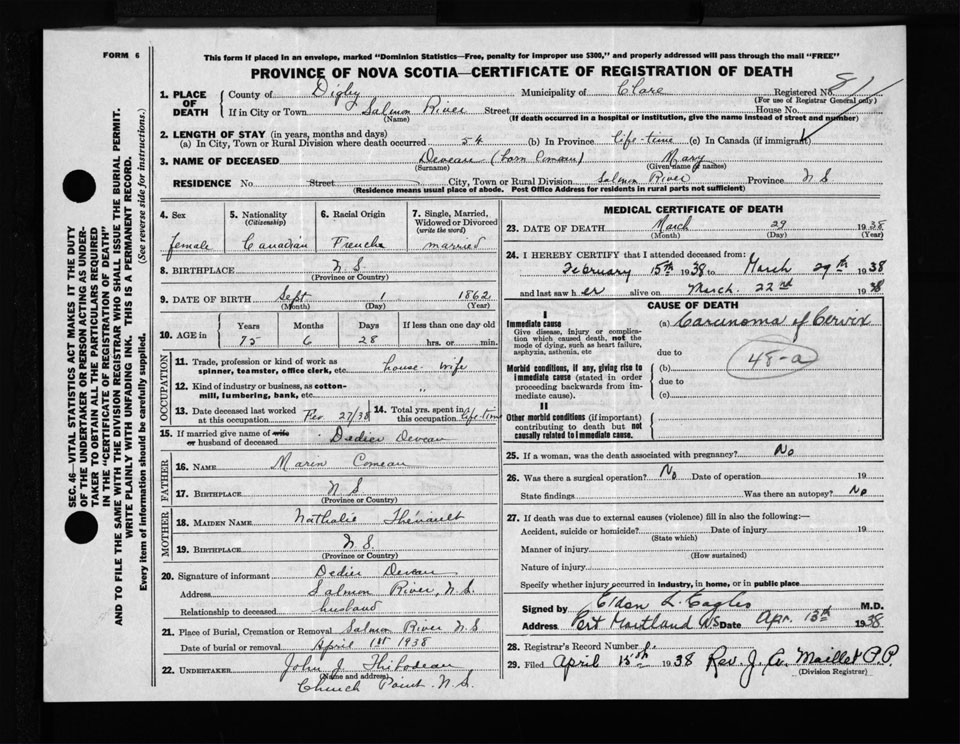 FORM 6
This form if placed in an envelope, marked "Dominion Statistics—Free, penalty for improper use $300," and properly addressed will pass through the mail "FREE"
PROVINCE OF NOVA SCOTIA—CERTIFICATE OF REGISTRATION OF DEATH
SEC. 46—VITAL STATISTICS ACT MAKES IT THE DUTY
OF THE UNDERTAKER OR PERSON ACTING AS UNDER-
TAKER TO OBTAIN ALL THE PARTICULARS REQUIRED
IN THE "CERTIFICATE OF REGISTRATION OF DEATH"
AND TO FILE THE SAME WITH THE DIVISION REGISTRAR WHO SHALL ISSUE THE BURIAL PERMIT.
WRITE PLAINLY WITH UNFADING INK. THIS IS A PERMANENT RECORD.
Every item of information should be carefully supplied. (See reverse side for instructions.)
1. PLACE OF DEATH County of Digby Municipality of Clare Registered No.
(For use of Registrar General only)
If in City or Town Salmon River Street House No.
(Name) (If death occurred in a hospital or institution, give the name instead of street and number)
2. LENGTH OF STAY (in years, months and days)
(a) In City, Town or Rural Division where death occurred 54 (b) In Province life-time (c) In Canada (if immigrant)
3. NAME OF DECEASED Deveau (born Comeau) Mary
(Surname) (Given name or names)
RESIDENCE No. Street City, Town or Rural Division Salmon River Province N S
(Residence means usual place of abode. Post Office Address for residents in rural parts not sufficient)
4. Sex female
5. Nationality (Citizenship) Canadian
6. Racial Origin French
7. Single, Married, Widowed or Divorced (write the word) married
8. BIRTHPLACE N. S.
(Province or Country)
9. DATE OF BIRTH Sept 1 1862
(Month) (Day) (Year)
10. AGE in Years Months Days If less than one day old
75 6 28 hrs. or min.
OCCUPATION
11. Trade, profession or kind of work as spinner, teamster, office clerk, etc. house-wife
12. Kind of industry or business, as cotton-mill, lumbering, bank, etc. "
13. Date deceased last worked at this occupation Fev 27/38
14. Total yrs. spent in this occupation life-time
15. If married give name of wife or husband of deceased Dedier Deveau
FATHER
16. NAME Maren Comeau
17. BIRTHPLACE N S
(Province or Country)
MOTHER
18. MAIDEN NAME Nathalie Thériault
19. BIRTHPLACE N. S.
(Province or Country)
20. Signature of informant Dedier Deveau
Address Salmon River, N. S.
Relationship to deceased husband
21. Place of Burial, Cremation or Removal Salmon River N S
Date of burial or removal April 1st 1938
22. UNDERTAKER John J. Thibodeau
(Name and address)
Church Point N. S.
MEDICAL CERTIFICATE OF DEATH
23. DATE OF DEATH March 29 1938
(Month) (Day) (Year)
24. I HEREBY CERTIFY that I attended deceased from:
February 15th 1938 to March 29th 1938
and last saw her alive on March. 22nd 1938
CAUSE OF DEATH
I
Immediate cause
Give disease, injury or complication which caused death, not the mode of dying, such as heart failure, asphyxia, asthenia, etc
(a) Carcinoma of Cervix
due to
48-a
Morbid conditions, if any, giving rise to immediate cause (stated in order proceeding backwards from immediate cause).
(b)
due to
(c)
II
Other morbid conditions (if important) contributing to death but not causally related to immediate cause.
25. If a woman, was the death associated with pregnancy? No
26. Was there a surgical operation? No Date of operation 19
State findings Was there an autopsy? No
27. If death was due to external causes (violence) fill in also the following:—
Accident, suicide or homicide? Date of injury 19
(State which)
Manner of injury
(How sustained)
Nature of injury
Specify whether injury occurred in industry, in home, or in public place
Signed by Elden L. Eagles M.D.
Address Port Maitland N.S Date Apr. 13th 1938
28. Registrar's Record Number
29. Filed April 15th 1938 Rev. J. A. Maillet P.P.
(Division Registrar)